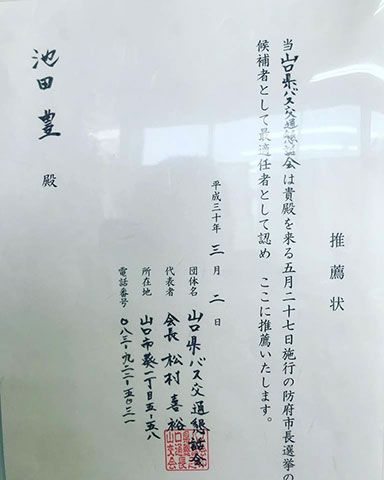 推薦状
当山口県バス交通懇話会は貴殿を来る五月二十七日施行の防府市長選挙の
候補者として最適任者として認め ここに推薦いたします。
平成三十年 三 月 二 日
団体名 山口県バス交通懇話会
代表者 会長 松村 喜裕
所在地 山口市葵一丁目五-五八
電話番号 〇八三-九二二-五〇三一
池田 豊 殿